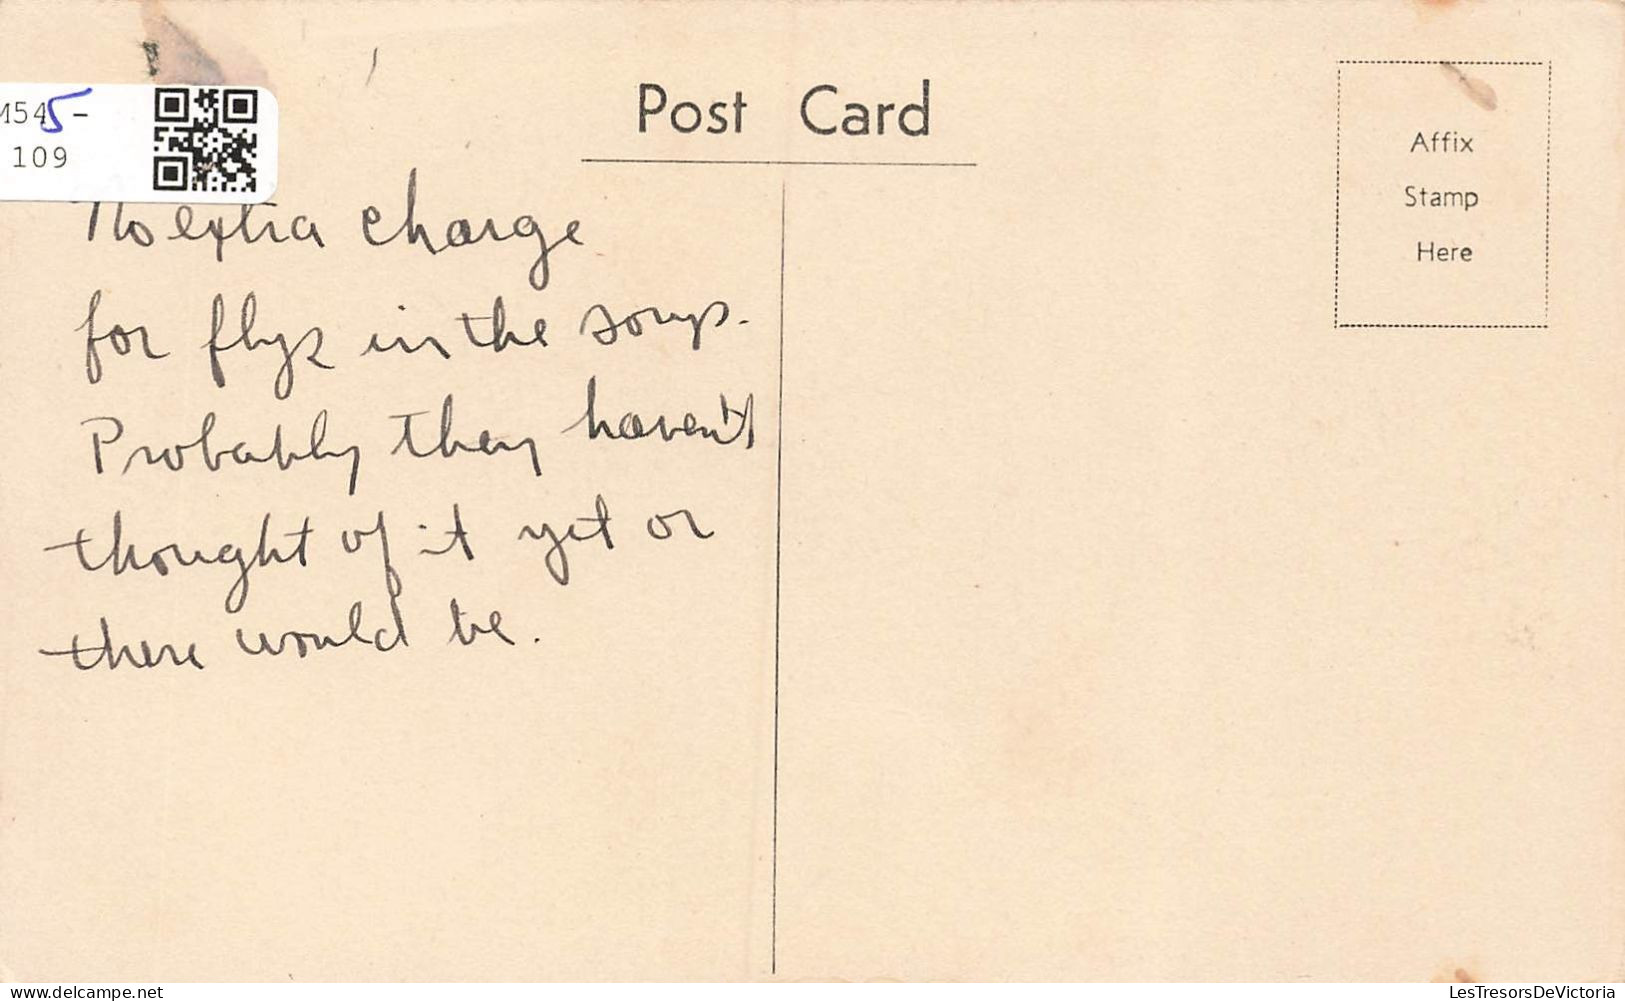 M545-
109
Post Card
Affix
Stamp
Here
No extra charge
for flys in the soup.
Probably they haven't
thought of it yet or
there would be.
delcampe.net
LesTresorsDeVictoria